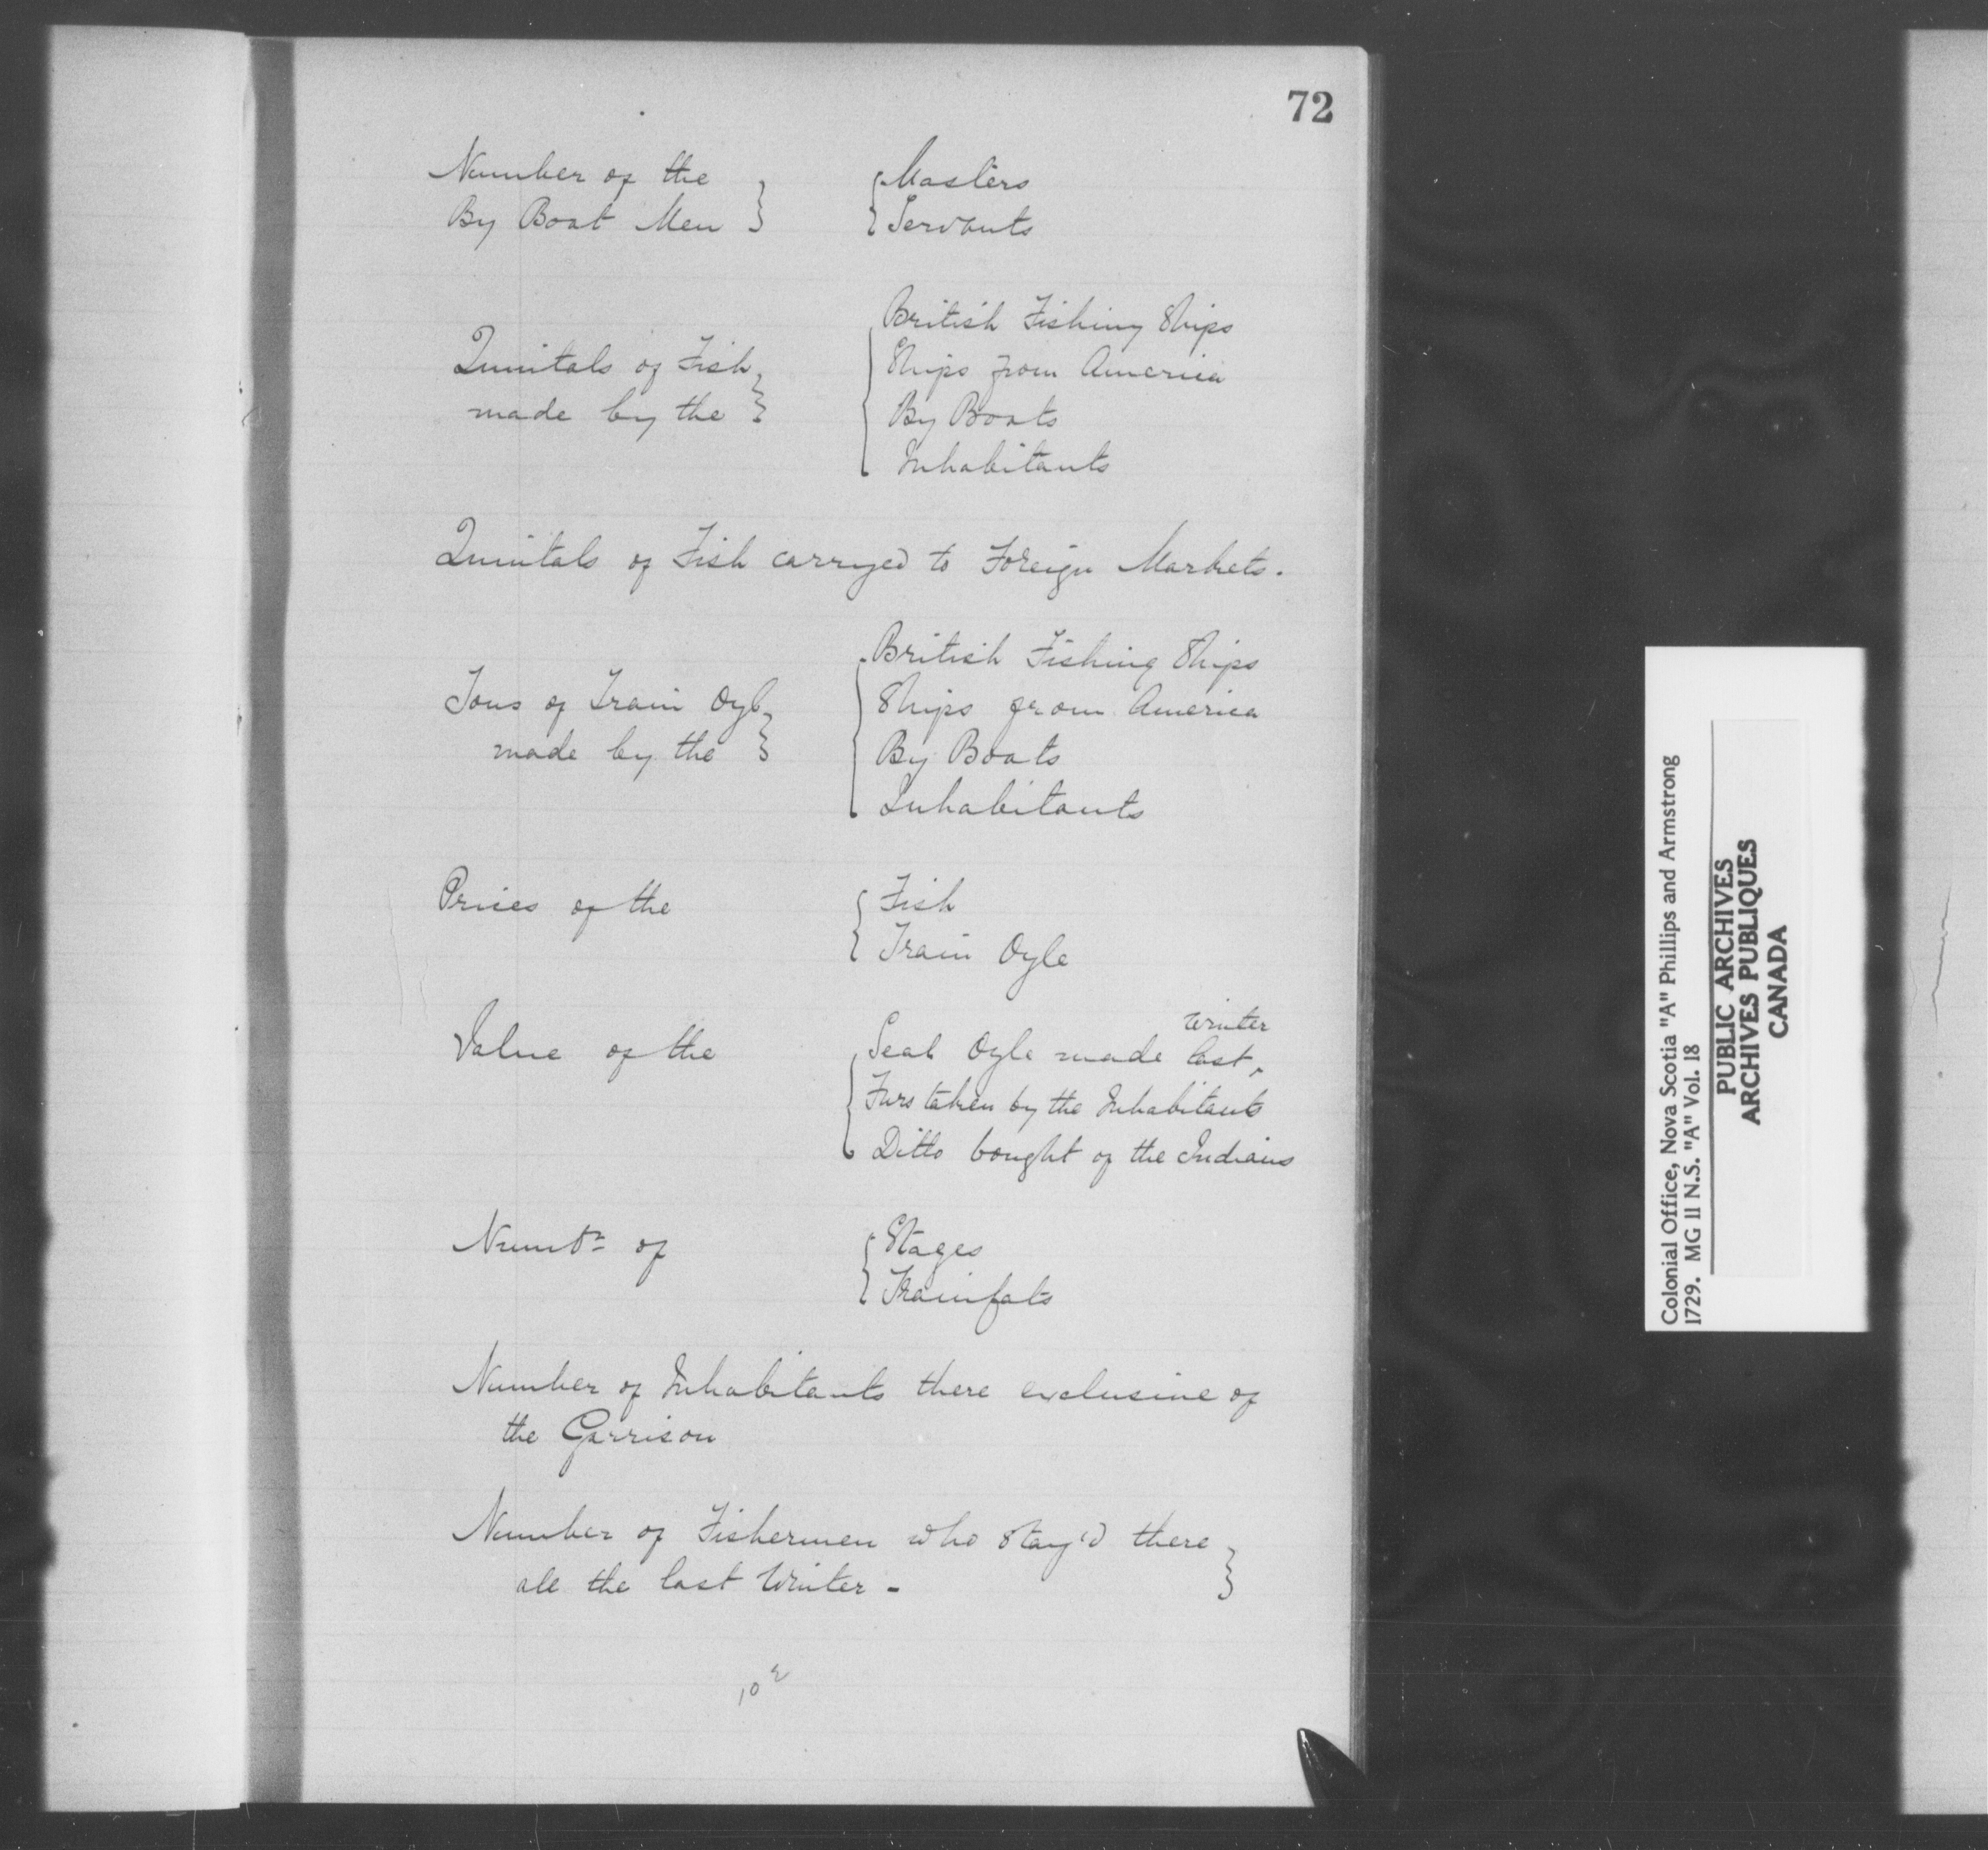 72
Number of the } { Masters
By Boat Men } { Servants
British Fishing Ships
Quintals of Fish } { Ships from America
made by the } By Boats
Inhabitants
Quintals of Fish carryed to Foreign Markets.
British Fishing Ships
Tons of Train Oyl } { Ships from America
made by the } By Boats
Inhabitants
Prices of the { Fish
Train Oyle
winter
Value of the { Seal Oyle made last ^
Furs taken by the Inhabitants
Ditto bought of the Indians
Numbr of { Stages
Trainfats
Number of Inhabitants there exclusive of
the Garrison
Number of Fishermen who stay'd there }
all the last Winter -
Colonial Office, Nova Scotia "A" Phillips and Armstrong
1729. MG 11 N.S. "A" Vol. 18
PUBLIC ARCHIVES
ARCHIVES PUBLIQUES
CANADA